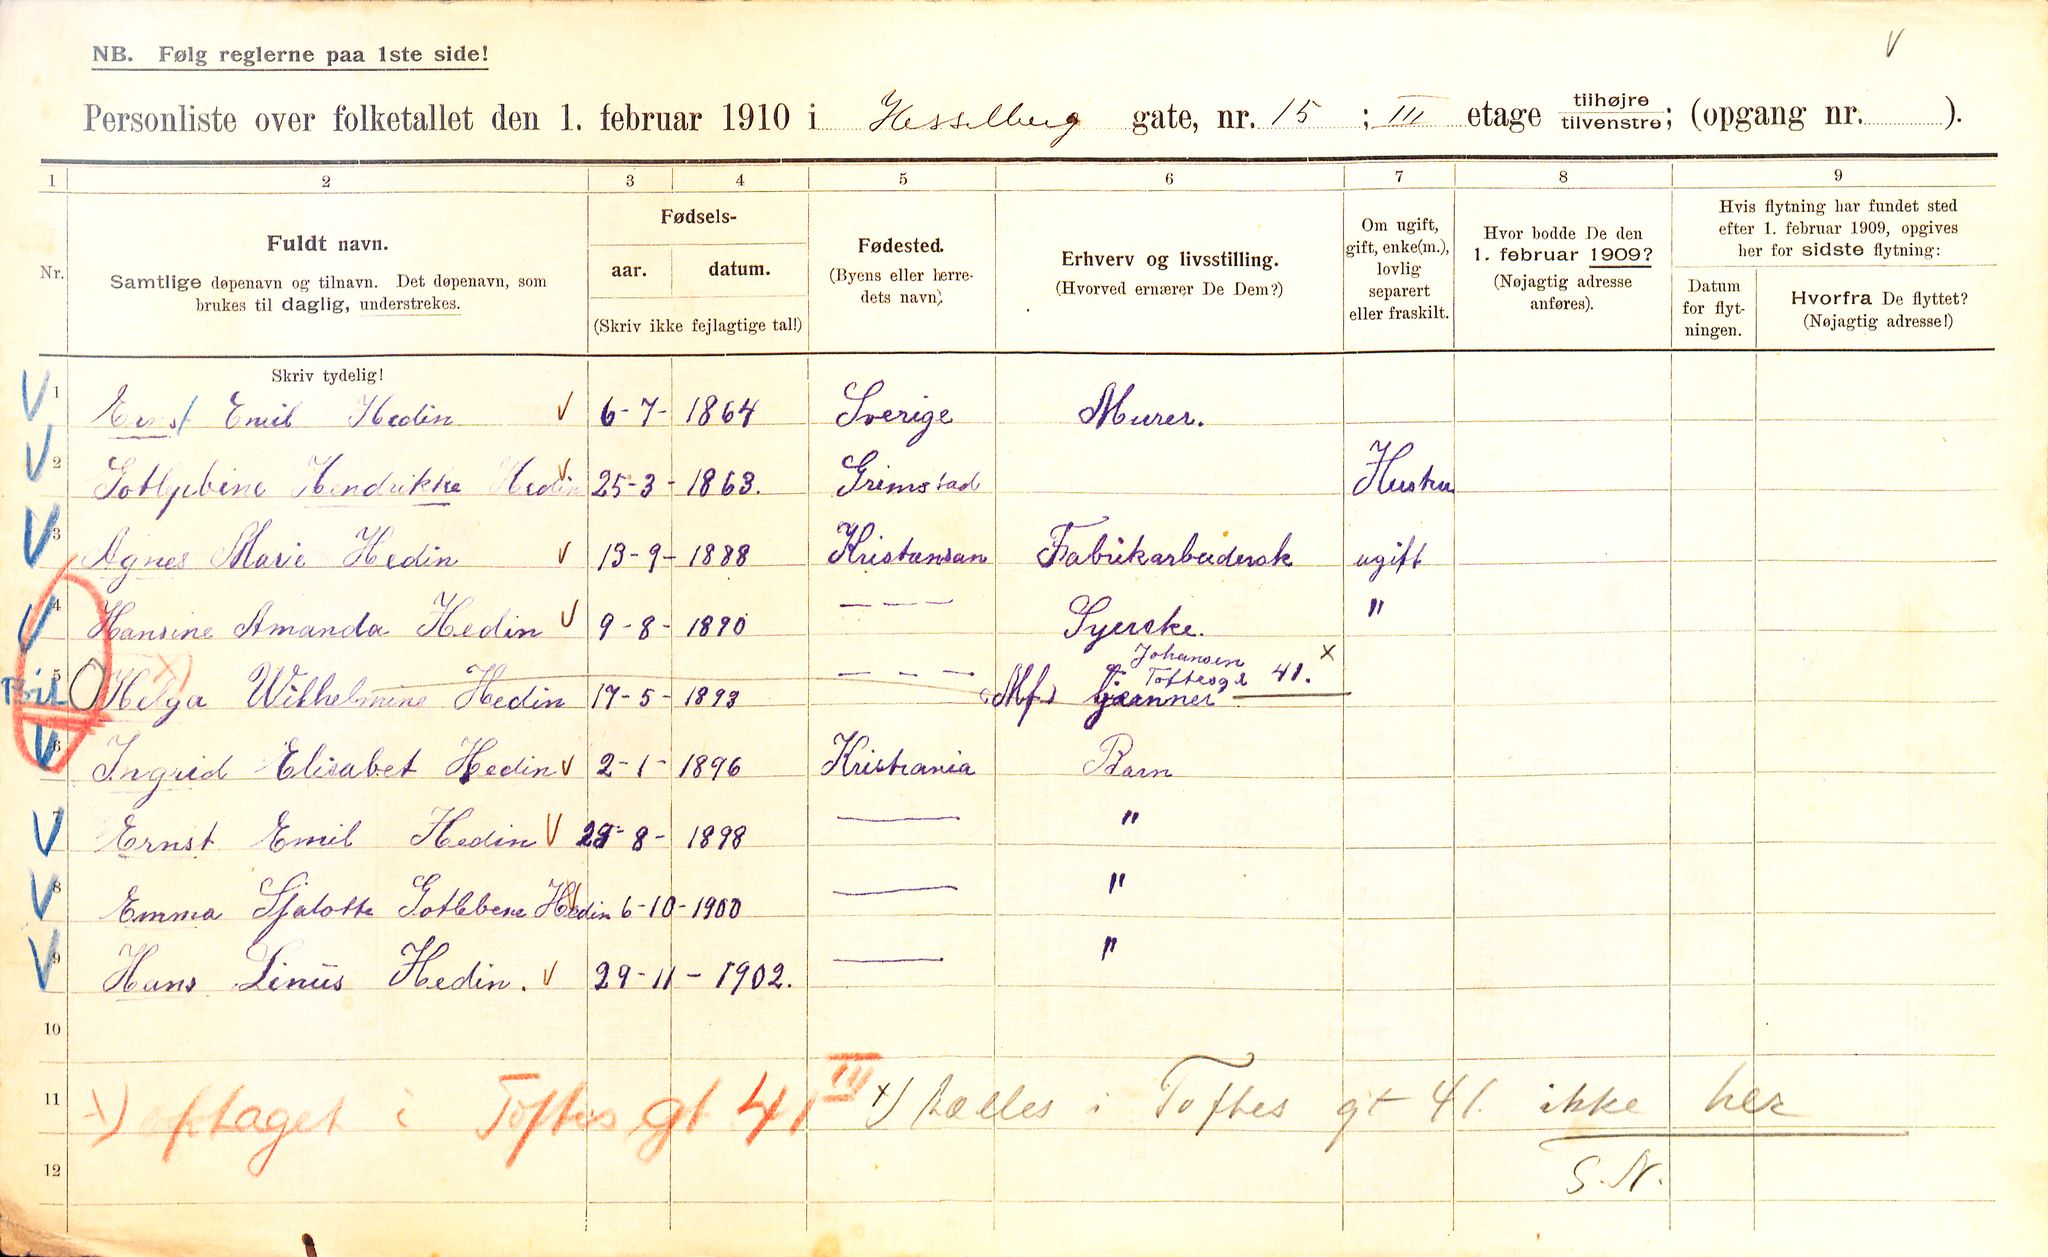 NB. Følg reglerne paa 1ste side!
V
Personliste over folketallet den 1. februar 1910 i Hesselberg gate, nr. 15 ; III etage tilhøjre tilvenstre; (opgang nr. ).
1 2 3 4 5 6 7 8 9
Nr.
Fuldt navn.
Samtlige døpenavn og tilnavn. Det døpenavn, som
brukes til daglig, understrekes.
Fødsels-
aar. datum.
(Skriv ikke fejlagtige tal!)
Fødested.
(Byens eller herre-
dets navn).
Erhverv og livsstilling.
(Hvorved ernærer De Dem?)
Om ugift,
gift, enke(m.),
lovlig
separert
eller fraskilt.
Hvor bodde De den
1. februar 1909?
(Nøjagtig adresse
anføres).
Hvis flytning har fundet sted
efter 1. februar 1909, opgives
her for sidste flytning:
Datum
for flyt-
ningen.
Hvorfra De flyttet?
(Nøjagtig adresse!)
Skriv tydelig!
1 Ernst Emil Hedin 6-7- 1864 Sverige Murer.
2 Gotlybine Hendrikke Hedin 25-3- 1863. Grimstad Hustru
3 Agnes Marie Hedin 13-9- 1888 Kristansan Fabrikarbeidersk ugift
4 Hansine Amanda Hedin 9-8- 1890 — — — Syerske. "
Johansen
Toftesgt 41. x
5 Helga Wilhelmine Hedin 17-5- 1893 — — —
6 Ingrid Elisabet Hedin 2-1- 1896 Kristiania Barn
7 Ernst Emil Hedin 8- 1898 — "
8 Emma Sjalotte Gotlebene Hedin 6-10- 1900 — "
9 Hans Linus Hedin. 29-11- 1902. — "
10
11 x) optaget i Toftes gt 41 III x) tælles i Toftes gt 41. ikke her
12 S.N.